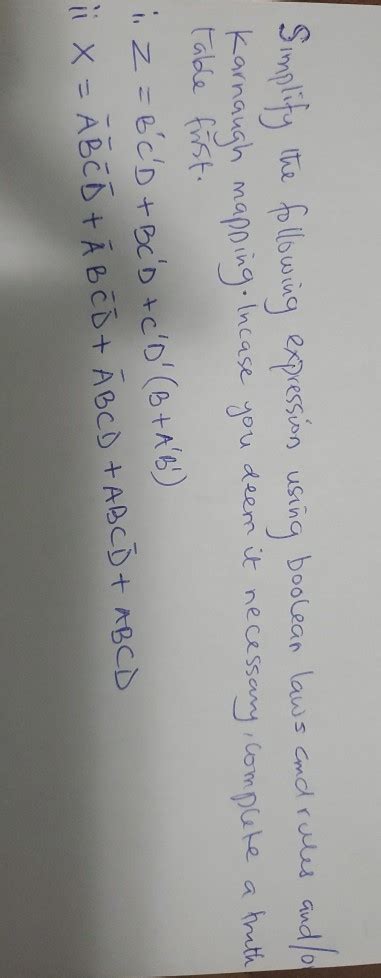 Simplify the following expression using boolean laws and rules and/o
Karnaugh mapping. Incase you deem it necessary, complete a truth
table first.
i. Z = B'C'D + BC'D + C'D'(B + A'B')
ii X = A̅B̅C̅D̅ + A̅BC̅D̅ + A̅BCD + ABCD̅ + ABCD